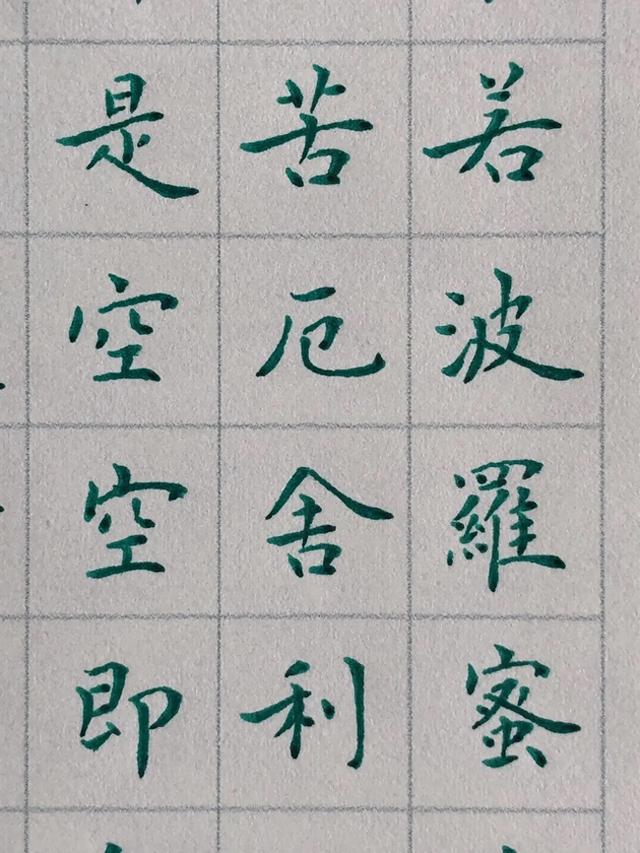 若波羅蜜
苦厄舍利
是空空即